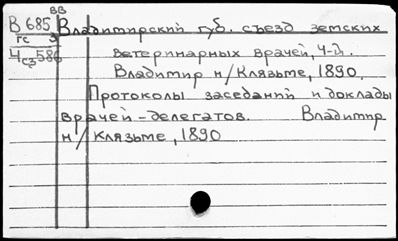 ВВ
В 685 Владимирский губ. съезд земских
гс 3
Ч сз 586 ветеринарных врачей, 4-й.
Владимир н/Клязьме, 1890.
Протоколы заседаний и доклады
врачей-делегатов. Владимир
н/Клязьме, 1890